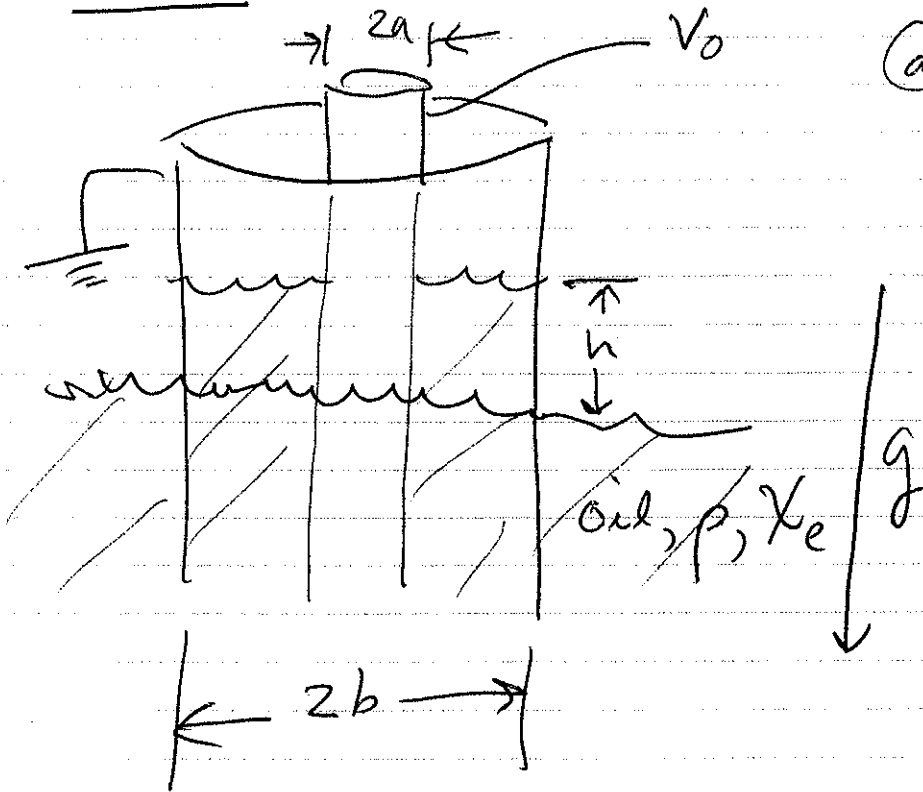 2a
V₀
(a
h
g
oil, ρ, χₑ
2b